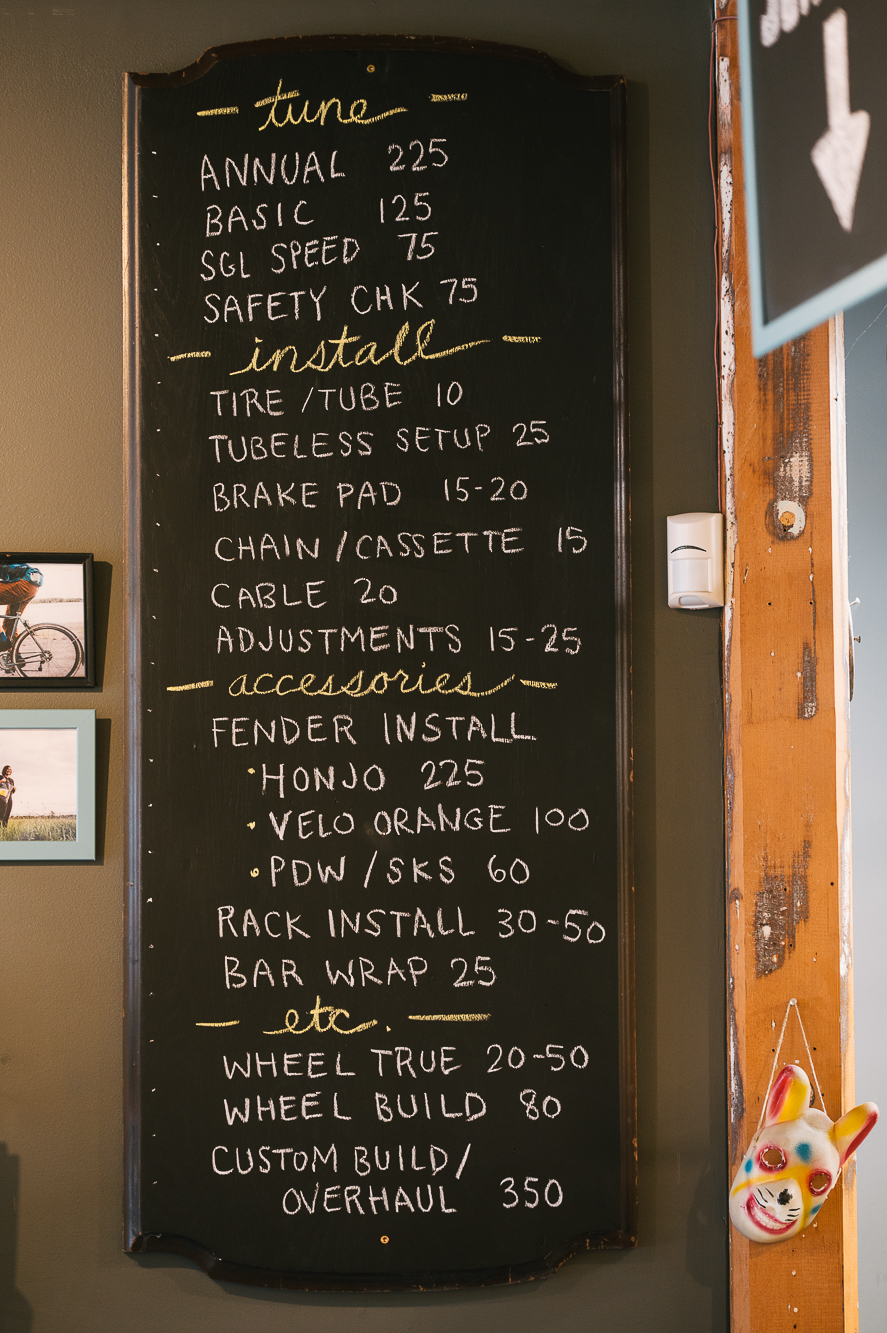 — tune —
ANNUAL 225
BASIC 125
SGL SPEED 75
SAFETY CHK 75
— install —
TIRE / TUBE 10
TUBELESS SETUP 25
BRAKE PAD 15-20
CHAIN / CASSETTE 15
CABLE 20
ADJUSTMENTS 15-25
— accessories —
FENDER INSTALL
• HONJO 225
• VELO ORANGE 100
• PDW / SKS 60
RACK INSTALL 30-50
BAR WRAP 25
— etc. —
WHEEL TRUE 20-50
WHEEL BUILD 80
CUSTOM BUILD /
OVERHAUL 350